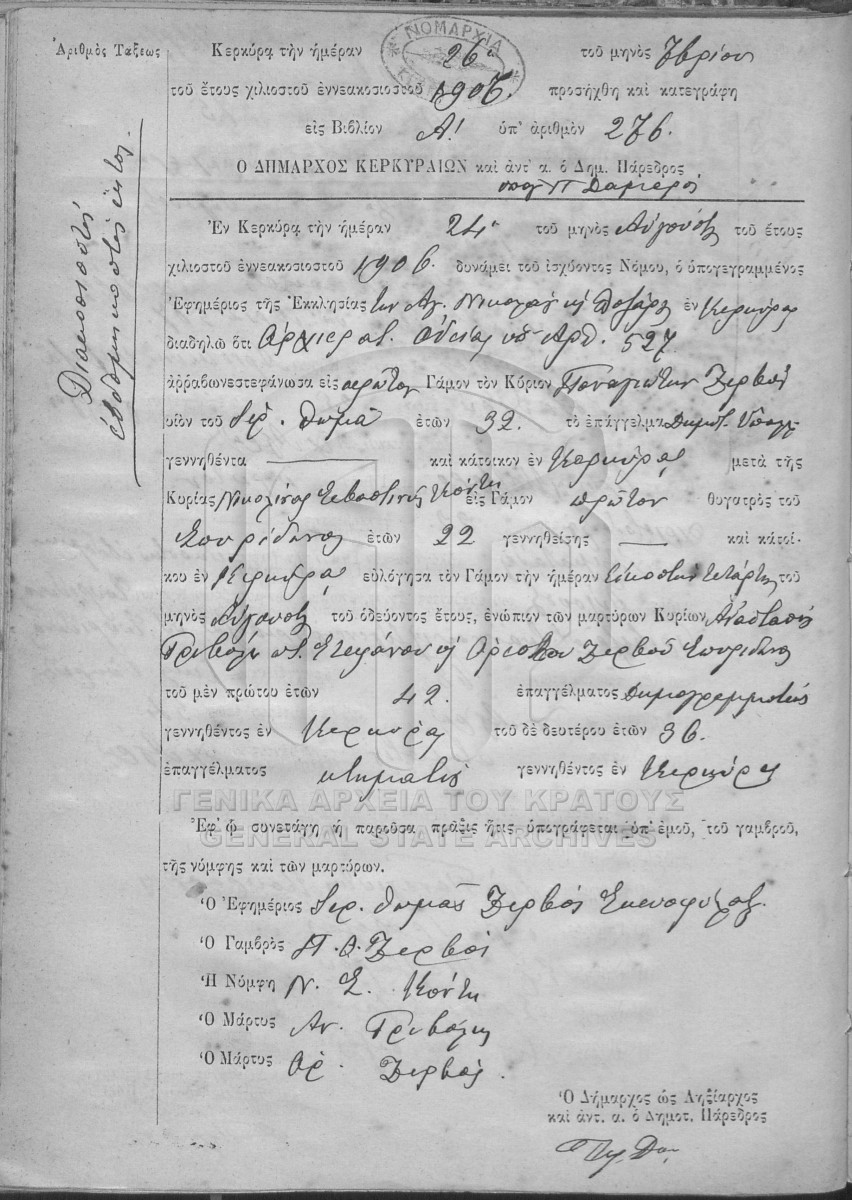 Ἀριθμὸς Τάξεως
Διακοσιοστὴ
ἑβδομηκοστὴ ἕκτη.
ΝΟΜΑΡΧΙΑ
Κερκύρα τὴν ἡμέραν 26 τοῦ μηνὸς 7βρίου
τοῦ ἔτους χιλιοστοῦ ἐννεακοσιοστοῦ 1906. προσήχθη καὶ κατεγράφη
εἰς Βιβλίον Α! ὑπ' ἀριθμὸν 276.
Ο ΔΗΜΑΡΧΟΣ ΚΕΡΚΥΡΑΙΩΝ καὶ ἀντ' α. ὁ Δημ. Πάρεδρος
Ἐν Κερκύρα τὴν ἡμέραν 24 τοῦ μηνὸς Αὐγούστου τοῦ ἔτους
χιλιοστοῦ ἐννεακοσιοστοῦ 1906. δυνάμει τοῦ ἰσχύοντος Νόμου, ὁ ὑπογεγραμμένος
Ἐφημέριος τῆς Ἐκκλησίας τῶν Ἁγ. Νικολάου καὶ Λαζάρου ἐν Κερκύρᾳ
διαδηλῶ ὅτι Ἀρχιερατ. ἀδείας ὑπ' Ἀρθ. 527
ἀρραβωνεστεφάνωσα εἰς πρῶτον Γάμον τὸν Κύριον Παναγιώτην Ζερβὸν
υἱὸν τοῦ Ἱερ. Θωμᾶ ἐτῶν 32. τὸ ἐπάγγελμα Δημοτ. Ὑπάλλ.
γεννηθέντα — καὶ κάτοικον ἐν Κερκύρᾳ μετὰ τῆς
Κυρίας Νικολίνας Σεβαστινῆς Κόντη εἰς Γάμον πρῶτον θυγατρὸς τοῦ
Σπυρίδωνος ἐτῶν 22 γεννηθείσης — καὶ κάτοι-
κου ἐν Κερκύρᾳ εὐλόγησα τὸν Γάμον τὴν ἡμέραν εἰκοστὴν τετάρτην τοῦ
μηνὸς Αὐγούστου τοῦ ὁδεύοντος ἔτους, ἐνώπιον τῶν μαρτύρων Κυρίων Ἀναστασίου
Τριβόλη Στεφάνου καὶ Ζερβοῦ Σπυρίδωνος
τοῦ μὲν πρώτου ἐτῶν 42. ἐπαγγέλματος Δημογραμματεὺς
γεννηθέντος ἐν Κερκύρᾳ τοῦ δὲ δευτέρου ἐτῶν 36.
ἐπαγγέλματος κτηματίας γεννηθέντος ἐν Κερκύρᾳ
ΓΕΝΙΚΑ ΑΡΧΕΙΑ ΤΟΥ ΚΡΑΤΟΥΣ
Ἐφ' ᾧ συνετάγη ἡ παροῦσα πρᾶξις ἥτις ὑπογράφεται ὑπ' ἐμοῦ, τοῦ γαμβροῦ,
GENERAL STATE ARCHIVES
τῆς νύμφης καὶ τῶν μαρτύρων.
Ὁ Ἐφημέριος Ἱερ. Θωμᾶς Ζερβὸς Σκευοφύλαξ.
Ὁ Γαμβρὸς Π. Θ. Ζερβὸς
Ἡ Νύμφη Ν. Σ. Κόντη
Ὁ Μάρτυς Αν. Τριβόλης
Ὁ Μάρτυς Αρ. Ζερβὸς.
Ὁ Δήμαρχος ὡς Ληξίαρχος
καὶ ἀντ. α. ὁ Δημοτ. Πάρεδρος